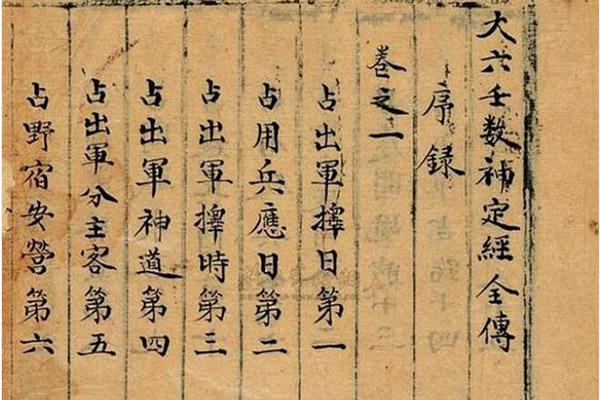 大六壬数補定經全傳
序録
卷之一
占出軍擇日第一
占用兵應日第二
占出軍擇時第三
占出軍神道第四
占出軍分主客第五
占野宿安營第六